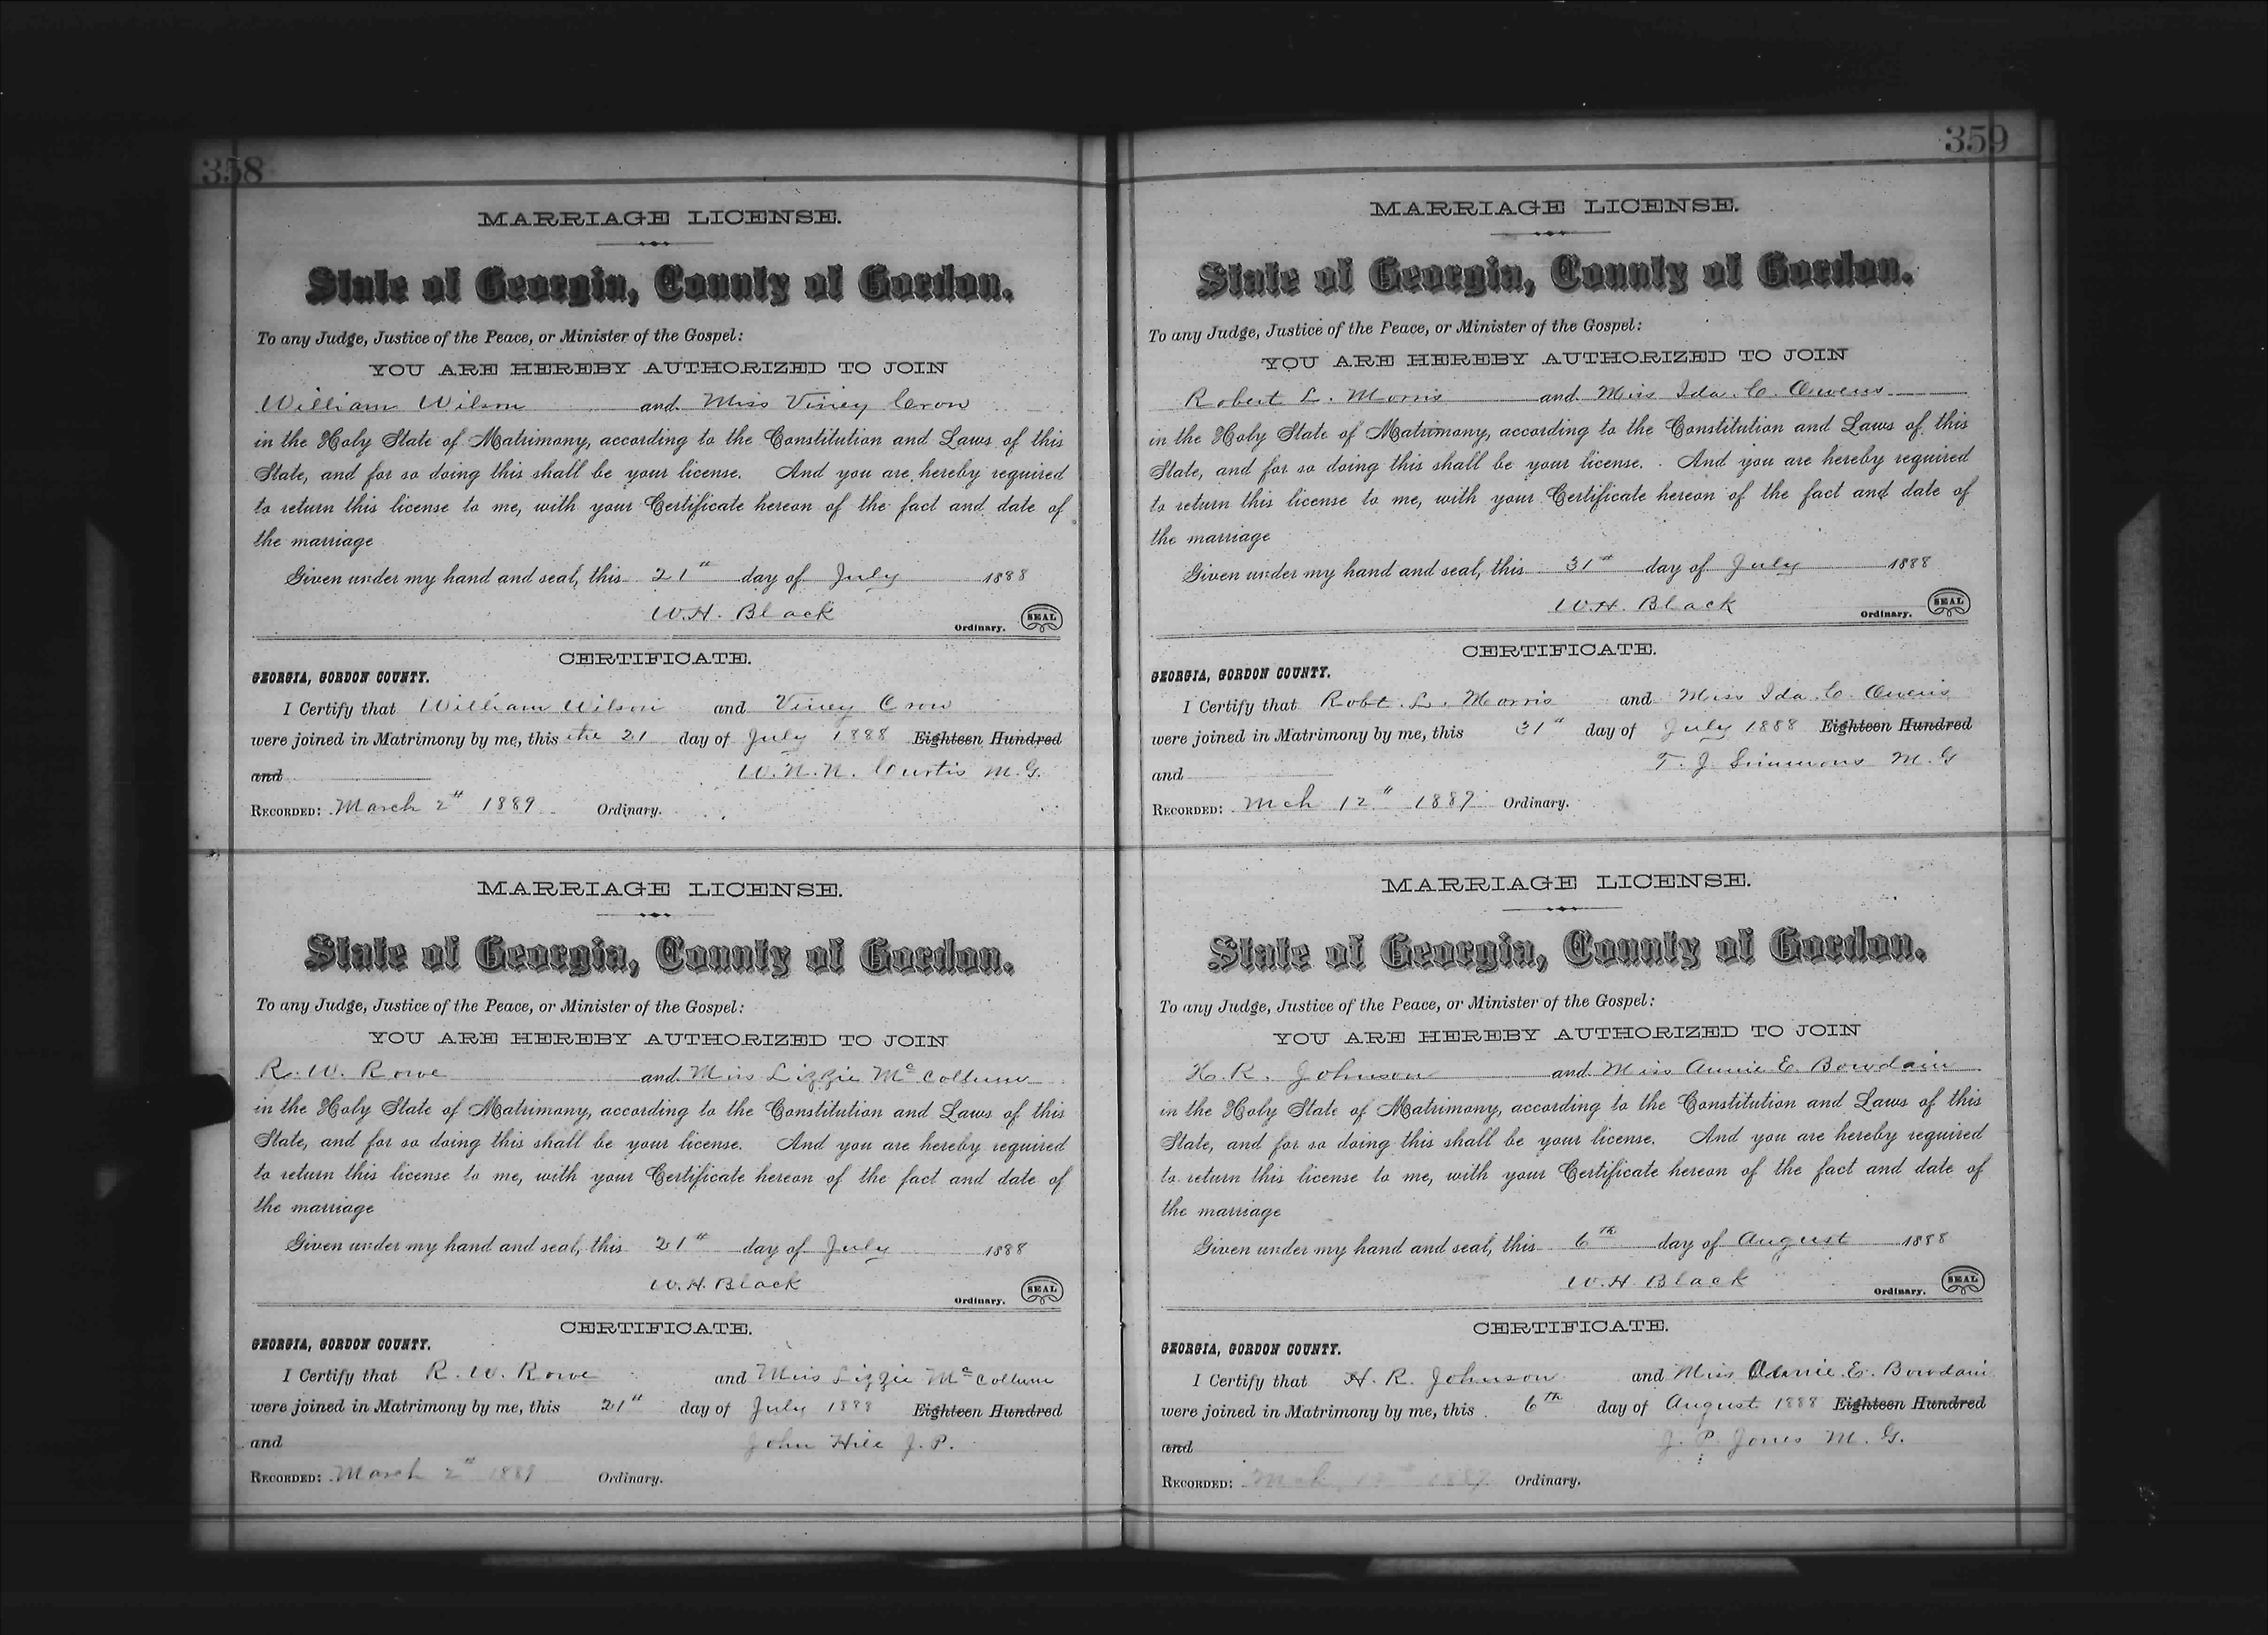 358
MARRIAGE LICENSE.
State of Georgia, County of Gordon.
To any Judge, Justice of the Peace, or Minister of the Gospel:
YOU ARE HEREBY AUTHORIZED TO JOIN
William Wilson and Miss Viney Crow
in the Holy State of Matrimony, according to the Constitution and Laws of this
State, and for so doing this shall be your license. And you are hereby required
to return this license to me, with your Certificate hereon of the fact and date of
the marriage
Given under my hand and seal, this 21st day of July 1888
W.H. Black
Ordinary. SEAL
CERTIFICATE.
GEORGIA, GORDON COUNTY.
I Certify that William Wilson and Viney Crow
were joined in Matrimony by me, this the 21 day of July 1888 Eighteen Hundred
and W.N.N. Curtis M.G.
RECORDED: March 2nd 1889 Ordinary.
MARRIAGE LICENSE.
State of Georgia, County of Gordon.
To any Judge, Justice of the Peace, or Minister of the Gospel:
YOU ARE HEREBY AUTHORIZED TO JOIN
R. W. Rowe and Miss Lizzie McCollum
in the Holy State of Matrimony, according to the Constitution and Laws of this
State, and for so doing this shall be your license. And you are hereby required
to return this license to me, with your Certificate hereon of the fact and date of
the marriage
Given under my hand and seal, this 21st day of July 1888
W.H. Black
Ordinary. SEAL
CERTIFICATE.
GEORGIA, GORDON COUNTY.
I Certify that R. W. Rowe and Miss Lizzie McCollum
were joined in Matrimony by me, this 21st day of July 1888 Eighteen Hundred
and John Hill J. P.
RECORDED: March 2nd 1889 Ordinary.
359
MARRIAGE LICENSE.
State of Georgia, County of Gordon.
To any Judge, Justice of the Peace, or Minister of the Gospel:
YOU ARE HEREBY AUTHORIZED TO JOIN
Robert L. Morris and Miss Ida C. Owens
in the Holy State of Matrimony, according to the Constitution and Laws of this
State, and for so doing this shall be your license. And you are hereby required
to return this license to me, with your Certificate hereon of the fact and date of
the marriage
Given under my hand and seal, this 31st day of July 1888
W.H. Black
Ordinary. SEAL
CERTIFICATE.
GEORGIA, GORDON COUNTY.
I Certify that Robt. L. Morris and Miss Ida C. Owens
were joined in Matrimony by me, this 31st day of July 1888 Eighteen Hundred
and T. J. Simmons M. G
RECORDED: Mch 12th 1889 Ordinary.
MARRIAGE LICENSE.
State of Georgia, County of Gordon.
To any Judge, Justice of the Peace, or Minister of the Gospel:
YOU ARE HEREBY AUTHORIZED TO JOIN
H. R. Johnson and Miss Annie E. Bowdain
in the Holy State of Matrimony, according to the Constitution and Laws of this
State, and for so doing this shall be your license. And you are hereby required
to return this license to me, with your Certificate hereon of the fact and date of
the marriage
Given under my hand and seal, this 6th day of August 1888
W.H. Black
Ordinary. SEAL
CERTIFICATE.
GEORGIA, GORDON COUNTY.
I Certify that H. R. Johnson and Miss Annie E. Bowdain
were joined in Matrimony by me, this 6th day of August 1888 Eighteen Hundred
and J. P. Jones M. G.
RECORDED: Mch 1889 Ordinary.